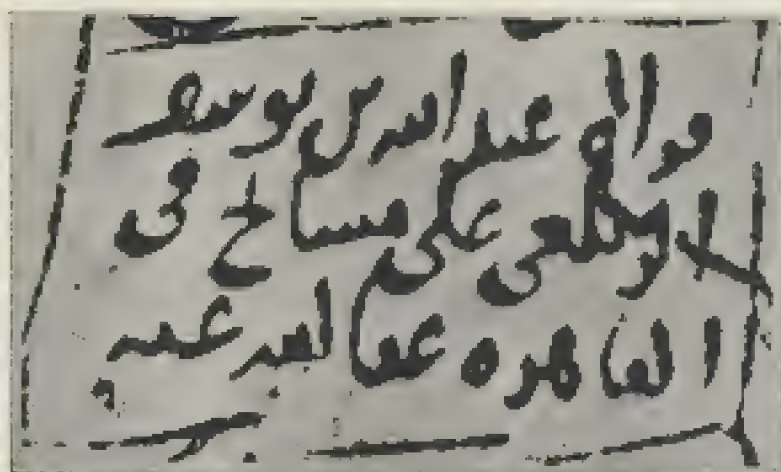 عبد الله بن يوسف
الزيلعي على مشايخ في
القاهره عفا الله عنه